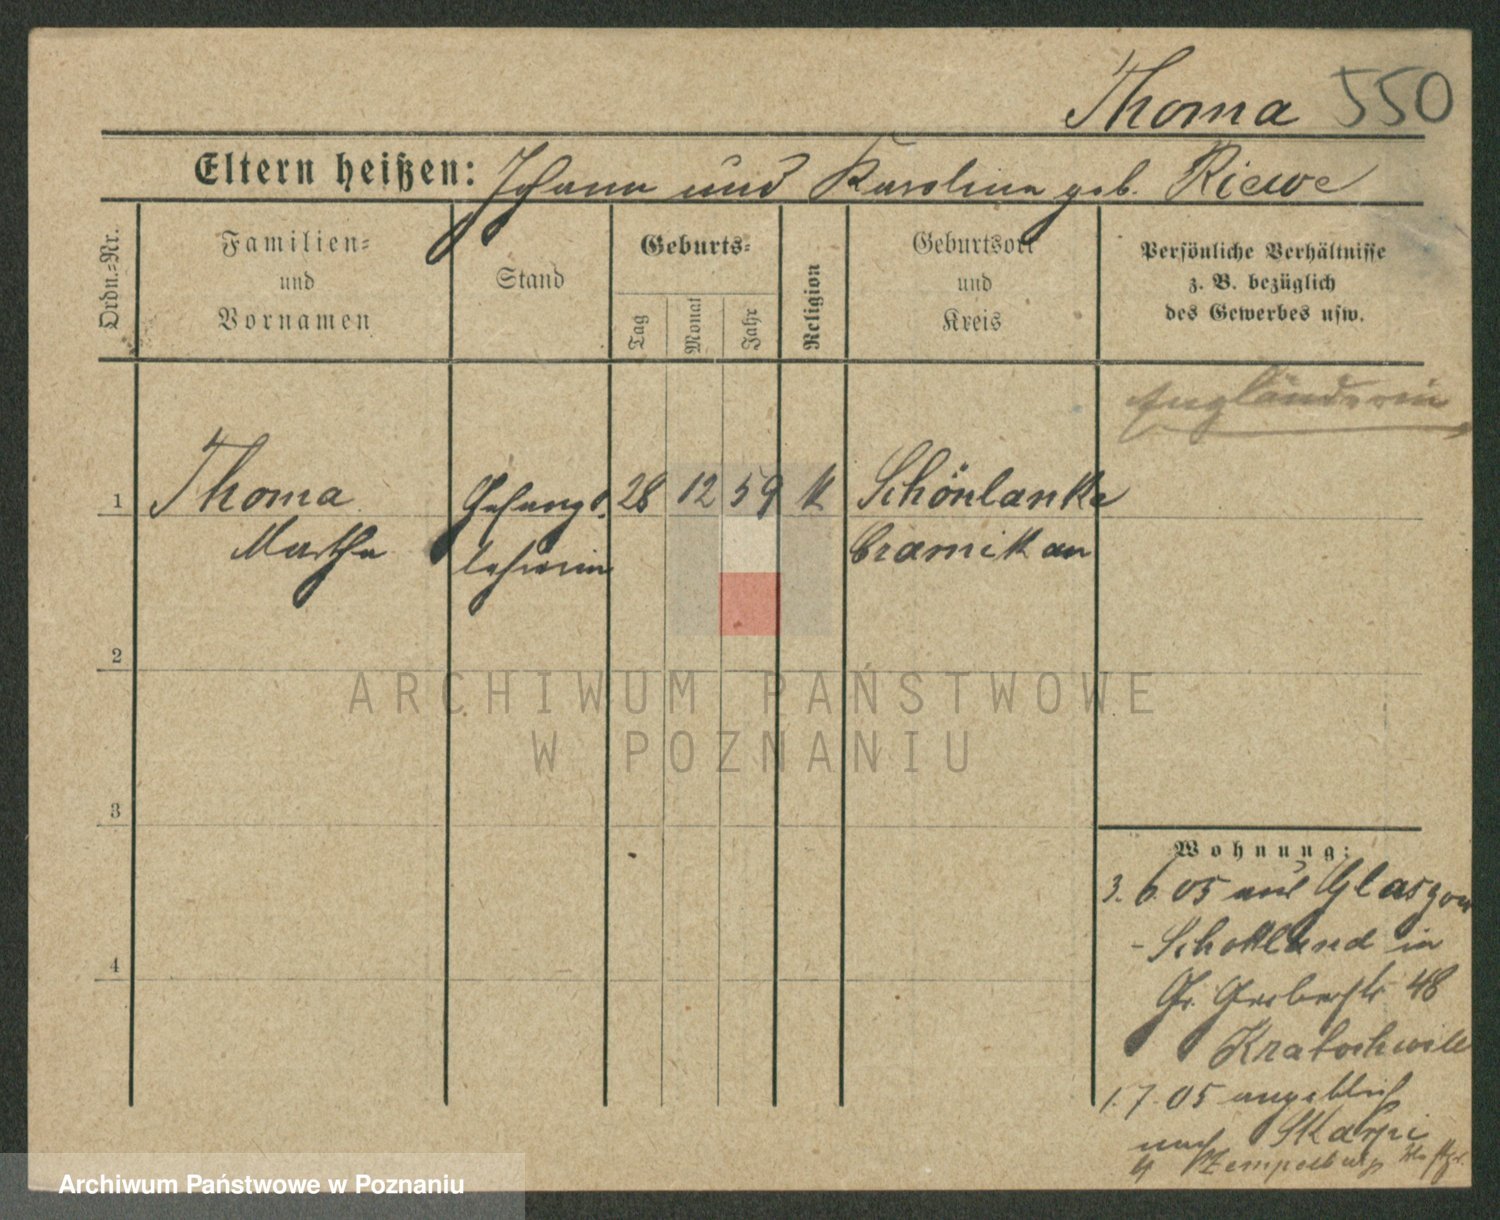 Thoma 550
Eltern heißen: Johann und Karolina geb. Riewe
Ordn.-Nr.
Familien-
und
Vornamen
Stand
Geburts-
Tag
Monat
Jahr
Religion
Geburtsort
und
Kreis
Persönliche Verhältnisse
z. B. bezüglich
des Gewerbes usw.
Engländerin
1 Thoma Gesangs 28 12 59 k Schönlanke
Martha lehrerin Czarnikau
2
3
4
Wohnung:
3. 6. 05 aus Glasgow
- Schottland in
Gr. Gerberstr 48
Kratochwill
1. 7. 05 angeblich
nach Skarpi
Zempelburg
ARCHIWUM PAŃSTWOWE
W POZNANIU
Archiwum Państwowe w Poznaniu